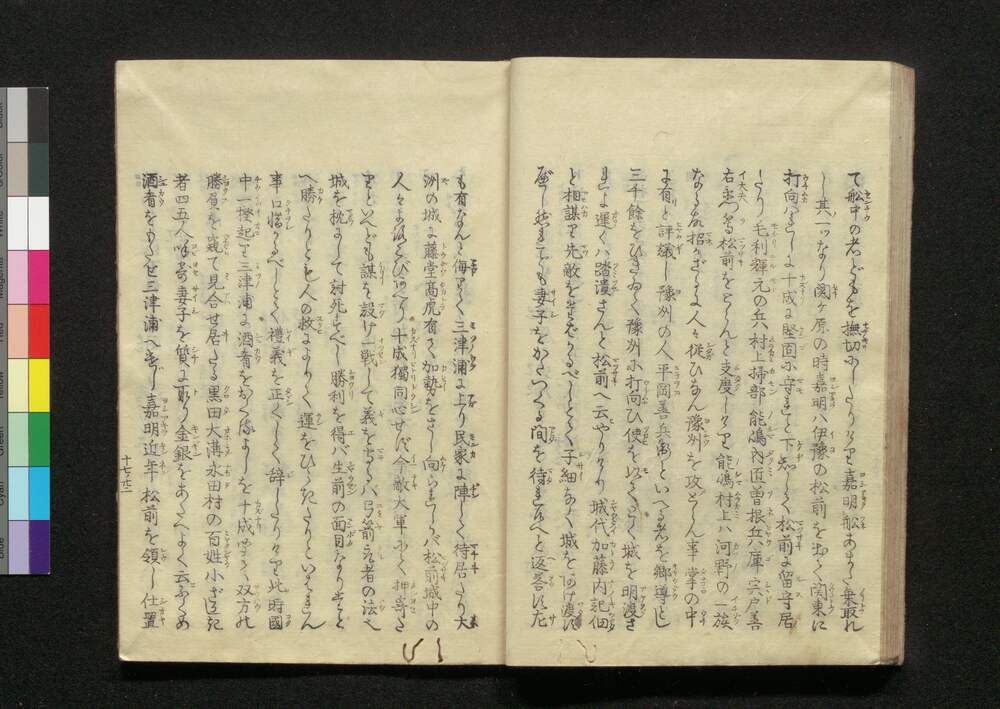 て船中の者どもを撫切にしたりけり嘉明船あまた乗取れ
し其一つなり関ヶ原の時嘉明ハ伊豫の松前を出て関東に
打向ひしに十成に堅固に守れと下知して松前に留守居
したり毛利輝元の兵村上掃部能嶋内匠曽根兵庫宍戸善
右衛門等松前をとらんと支度しけり能嶋村上ハ河野の一族
なる故招かざるに人々従ひなん豫州を攻とらん事掌の中
に有りと評議し豫州の人平岡善兵衛といへる者を郷導とし
三千餘をひきゐて豫州に打向ひ使を以て城を明渡さ
れよ遅くハ踏潰さんと松前へ云やりけり城代加藤内記佃
と相謀り先敵をすべしとて子細なく城をあけ渡し
候まで妻子をかたづくる間を待れ候へと返答
も有なんと侮りて三津浦に上り民家に陣して待居たり大
洲の城に藤堂高虎有て加勢をさし向られしバ松前城中の
人々よろこびけり十成獨同心せず今敵大軍にて押寄た
りといへども謀を設け一戦して義を立るハ弓箭とる者の法
城を枕にして討死すべし勝利を得バ生前の面目なり
へ勝たりとも人の救により運をひらきたりといはれん
事口惜かるべしとて禮義を正して辞したりけり此時國
中一揆起り三津浦に酒肴をおくるよしを十成聞て双方の
勝負を窺て見合せ居たる黒田大溝永田村の百姓小記
者四五人呼寄妻子を質に取り金銀をあたへよく云ふくめ
酒肴をもたせ三津浦へ遣し嘉明近年松前を領し仕置
十七ノ二